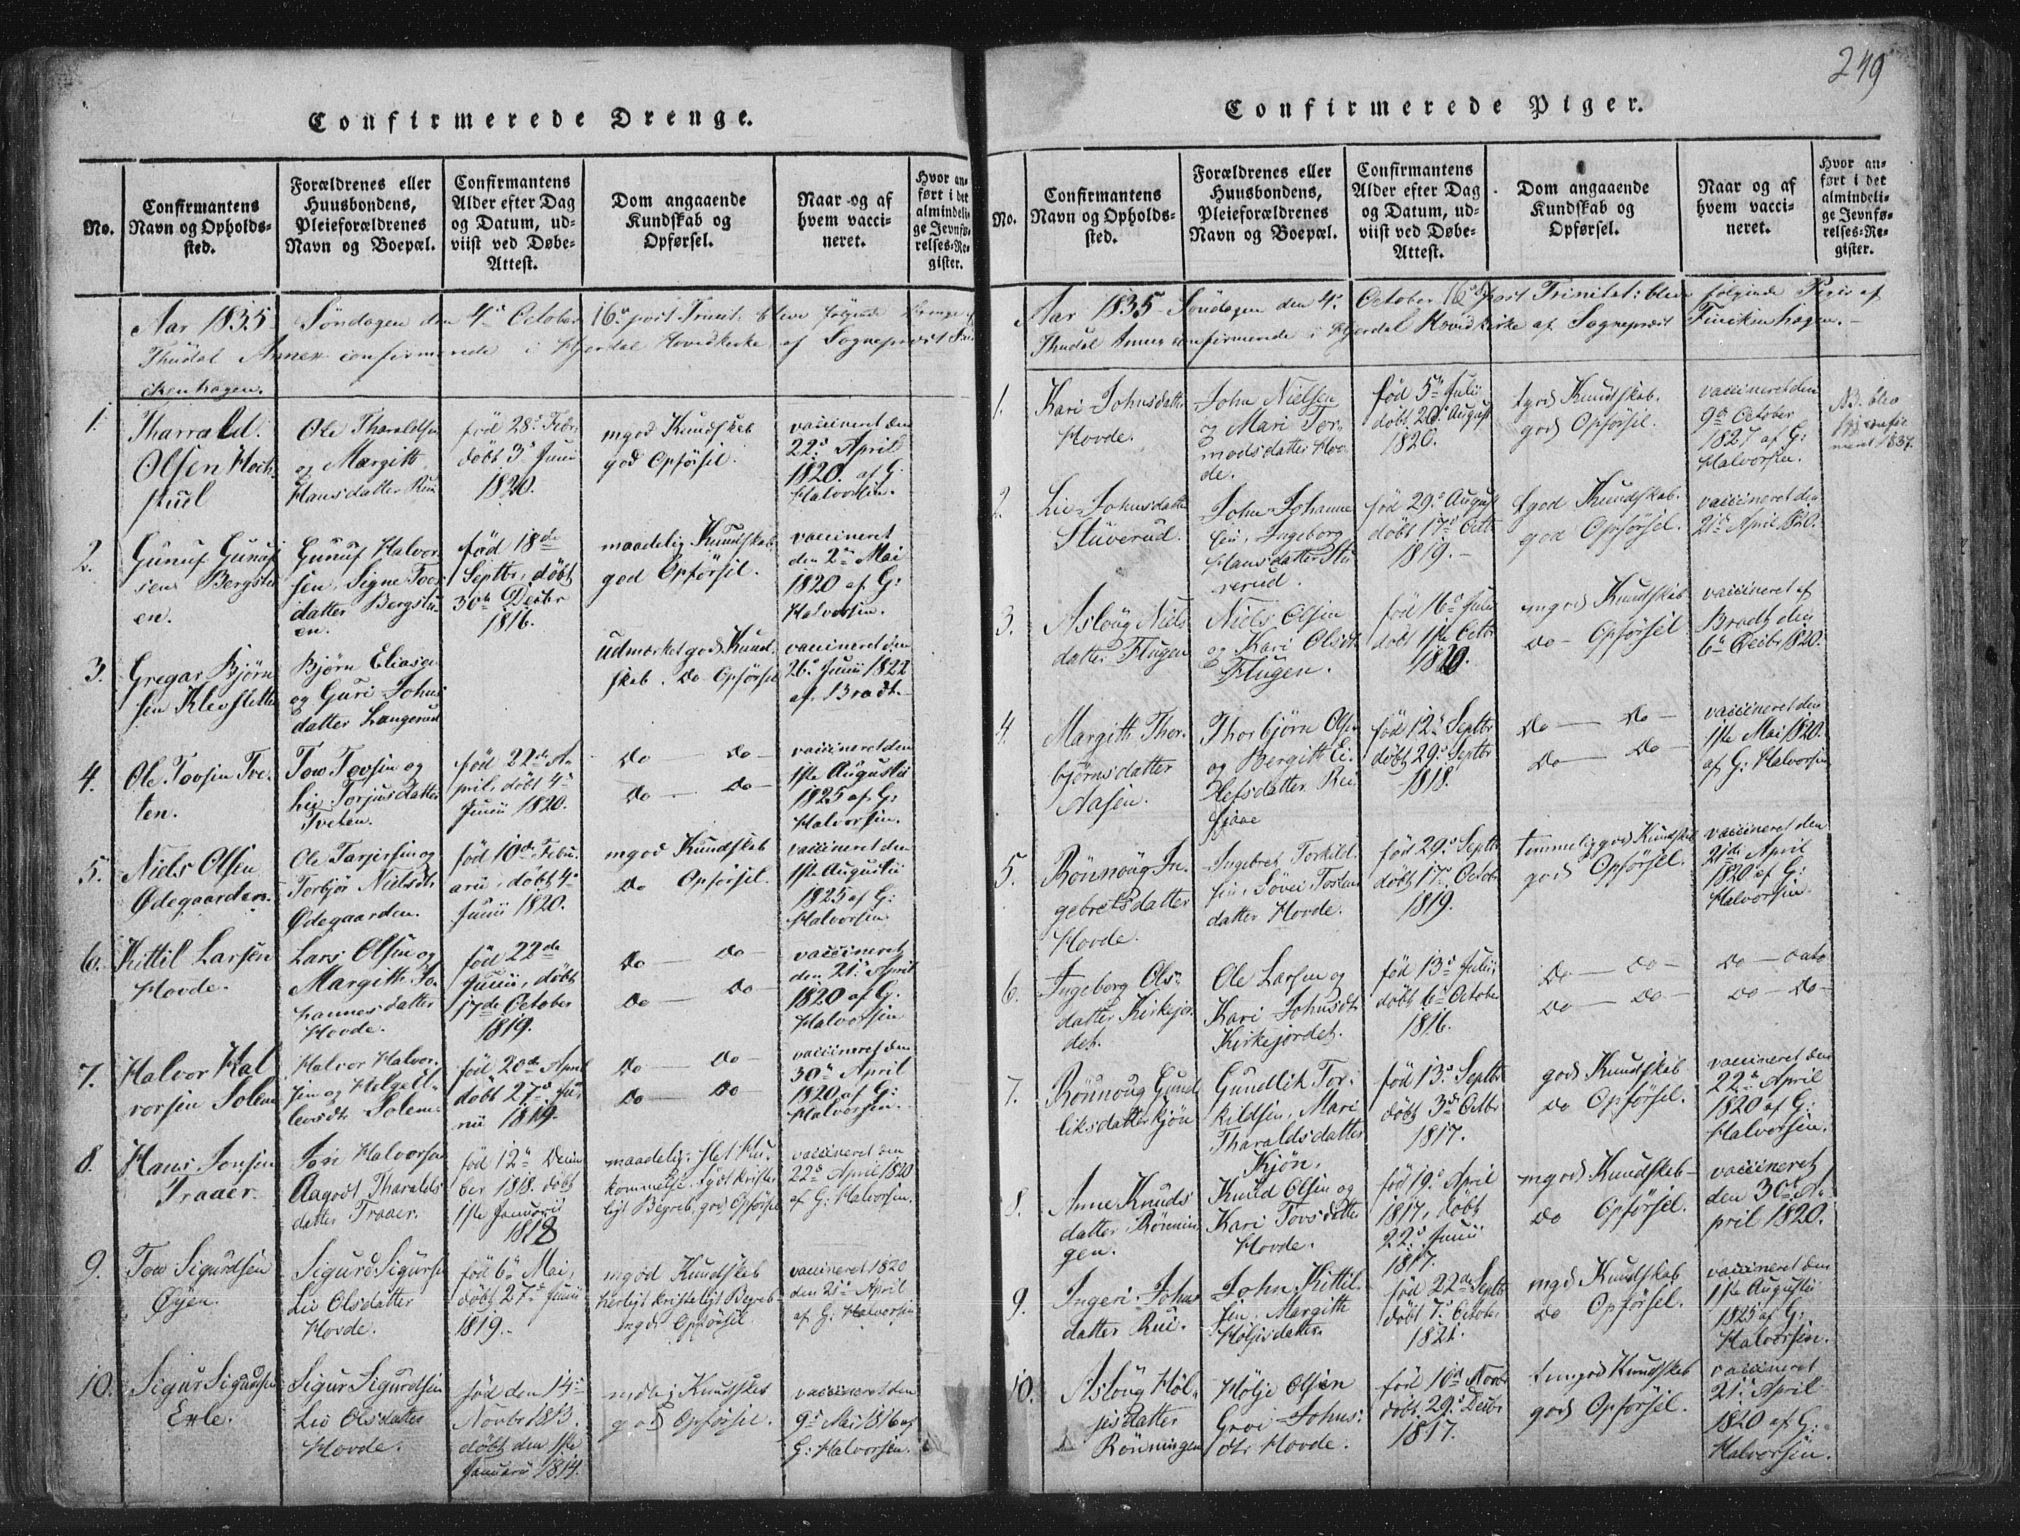 249
Confirmerede Drenge.
No.
Confirmantens
Navn og Opholds-
sted.
Forældrenes eller
Huusbondens,
Pleieforældrenes
Navn og Boepæl.
Confirmantens
Alder efter Dag
og Datum, ud-
viist ved Døbe-
Attest.
Dom angaaende
Kundskab og
Opførsel.
Naar og af
hvem vacci-
neret.
Hvor an-
ført i det
almindeli-
ge Jevnfø-
relses-Re-
gister.
Aar 1835 Søndagen den 4de October 16de post Trinit: bleve følgende Drenge af
Thudal Annex confirmerede i Hjerdal Hovedkirke af Sognepræst Fin
ckenhagen.
1.
Tharrald
Olsen
Ole Tharaldsen
og Margith
Hansdatter Rui
fød 28de Febr:
døbt 3de Junii
1820.
mgod Kundskab
god Opførsel.
vaccineret den
22de April
1820. af G:
Halvorsen.
2.
Gunuf Gunuf
sen Bergstu
en.
Gunuf Halvor
sen, Signe Tovs
datter Bergstu
en.
fød 18de
Septbr, døbt
30te Decbr
1816.
maadelig Kundskab.
god Opførsel.
vaccineret
den 2den Mai
1820 af G:
Halvorsen.
3.
Gregar Bjørn
sen Klevstetten
Bjørn Eliasen
og Guri Johns
datter Langerud
udmærket god Kund
skab. Do Opførsel
vaccineret den
26de Junii 1822
af Bradt
4.
Ole Tovsen Tve-
ten.
Tow Tovsen og
Liv Torjusdatter
Tveten.
fød 22de A-
pril, døbt 4de
Junii 1820.
Do — Do —
Do — Do —
vaccineret den
1ste Augustii
1825 af G:
Halvorsen.
5.
Niels Olsen
Ødegaarden.
Ole Tarjersen og
Torbjør Nielsdt.
Ødegaarden.
fød 10de Febru
arii, døbt 4de
Junii 1820.
mgod Kundskab
Do Opførsel.
vaccineret den
1ste Augustii
1825 af G:
Halvorsen
6.
Kittil Larsen
Hovde.
Lars Olsen og
Margith Jo-
hannesdatter
Hovde.
fød 22de
Junii, døbt
17de October
1819.
Do — Do —
Do — Do —
vaccineret
den 21de April
1820 af G:
Halvorsen
7.
Halvor Hal
vorsen Solem
Halvor Halvor-
sen og Helge El-
levsdt. Solem.
fød 20de April
døbt 27de Ju
nii 1819.
Do — Do —
Do — Do
vaccineret den
30te April
1820 af G:
Halvorsen.
8.
Hans Jonsen
Traaer.
Jon Halvorsen
Aagodt Tharalds
datter Traaer.
fød 12te Decem
ber 1818. døbt
1ste Januarii
1818
maadelig, slet Hu
kommelse, tydt kriste
ligt Begreb, god Opførsel
vaccineret den
22de April 1820
af G: Halvorsen.
9.
Tow Sigurdsen
Øyen.
Sigurd Sigurse
Liv Olsdatter
Hovde.
fød 6te Mai,
døbt 27de Junii
1819.
mgod Kundskab
herligt kristeligt Begreb
mgod Opførsel
vaccineret 1820
den 21de April
af G: Halvorsen
10.
Sigur Sigurdsen
Erle.
Sigur Sigurdsen
Liv Olsdatter
Hovde.
fød den 14de
Novbr 1813.
døbt den 1ste
Januarii 1814.
mdelig Kundskab
god Opførsel.
vaccineret den
9de Mai 1816 af
G: Halvorsen.
Confirmerede Piger.
No.
Confirmantens
Navn og Opholds-
sted.
Forældrenes eller
Huusbondens,
Pleieforældrenes
Navn og Boepæl.
Confirmantens
Alder efter Dag
og Datum, ud-
viist ved Døbe-
Attest.
Dom angaaende
Kundskab og
Opførsel.
Naar og af
hvem vacci-
neret.
Hvor an-
ført i det
almindeli-
ge Jevnfø-
relses-Re-
gister.
Aar 1835 Søndagen den 4de October 16de post Trinitat: bleve følgende Piger af
Thudal Annex confirmerede i Hjerdal Hovedkirke af Sognepræst Finckenhagen. —
1.
Kari Johnsdatter
Hovde.
John Nielsen
og Mari Tor-
modsdatter Hov
de.
fød 5te Julii
døbt 20de August
1820.
tgod Kundskab.
god Opførsel.
vaccineret den
9de October
1827 af G:
Halvorsen.
NB. blev
confir
meret 1837.
2.
Liv Johnsdatter
Stuverud.
John Johanne
sen, Ingeborg
Hansdatter Stu
verud.
fød 29de August
døbt 17de Octbr
1819. —
tgod Kundskab.
god Opførsel.
vaccineret den
21de April 1820.
3.
Asloug Niels
datter Flugen
Niels Olsen
og Kari Olsdt.
Flugen.
fød 16de Julii
døbt 1ste Octbr
1820.
mgod Kundskab
Do — Opførsel
vaccineret af
Bradt den
6te Decbr 1820.
4.
Margith Thor-
bjørnsdatter
Aasen.
Thorbjørn Olse
og Bergith Ei-
lefsdatter Rui
sjaae
fød 12te Septbr
døbt 29de Septbr
1818.
Do — Do —
Do — Do —
vaccineret den
1ste Mai 1820.
af G: Halvorsen
5.
Rønnoug In-
gebretsdatter
Hovde.
Ingebret Torkild-
sen, Søvei Tostens
datter Hovde.
fød 29de Septbr
døbt 17de Octobr
1819.
temmelig god Kundskab
god Opførsel.
vaccineret den
21de April
1820 af G:
Halvorsen
6.
Ingeborg Ols-
datter Kirkejor
det.
Ole Larsen og
Kari Johnsdt.
Kirkejordet.
fød 13de Julii,
døbt 6te October
1816.
Do — Do —
Do — Do —
Do — Dato
Do — Do —
7.
Rønnoug Gund
liksdatter Kjøn
Gundlik Tor-
kildsen, Mari
Tharaldsdatter
Kjøn.
fød 13de Septbr
døbt 3de Octbr
1817.
god Kundskab
Do Opførsel.
vaccineret den
22de April
1820 af G:
Halvorsen.
8.
Anne Knuds
datter Rønnin
gen.
Knud Olsen og
Kari Tovsdatter
Hovde.
fød 19de April
1817, døbt
22de Junii
1817.
mgod Kundskab
Do Opførsel.
vaccineret
den 30te A-
pril 1820.
9.
Ingeri Johns
datter Rui.
John Kittil-
sen, Margith
Høljesdatter
fød 22de Septbr
døbt 7de Octobr
1821.
mgod Kundskab
Do Opførsel.
vaccineret den
1ste Augustii
1825 af G:
Halvorsen.
10.
Asloug Høl-
jesdatter
Rønningen
Hølje Olsen
Groe Johns-
dtr Hovde.
fød 10de Novbr
døbt 29de Decbr
1817.
temgod Kundskab
god Opførsel.
vaccineret
21de April
1820 af G:
Halvorsen.